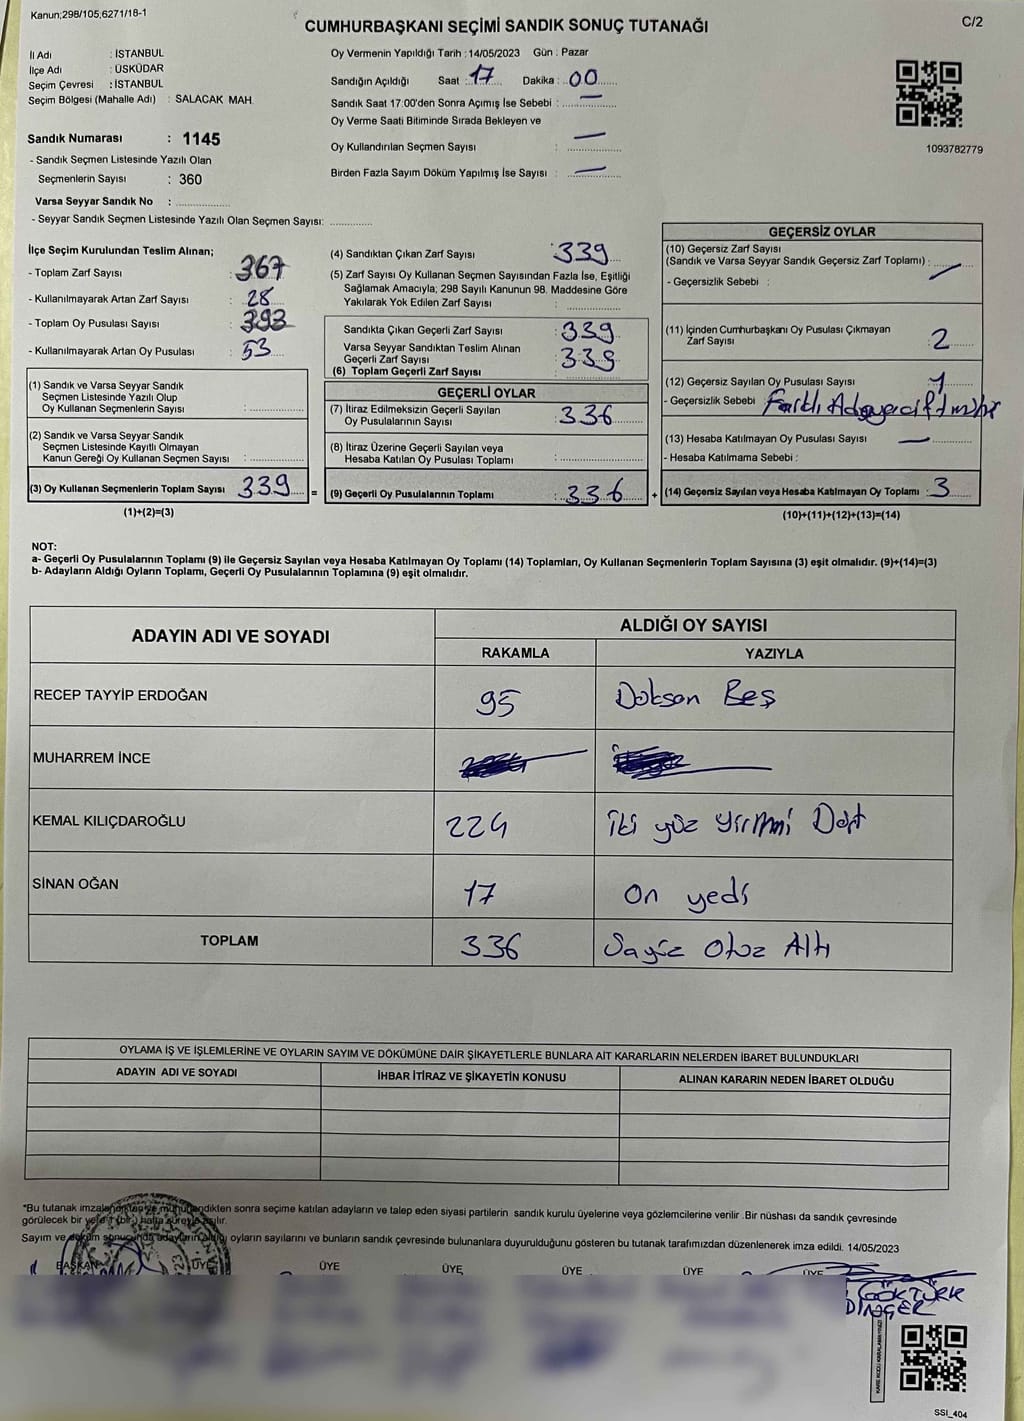 Kanun;298/105,6271/18-1
CUMHURBAŞKANI SEÇİMİ SANDIK SONUÇ TUTANAĞI
C/2
İl Adı : İSTANBUL
İlçe Adı : ÜSKÜDAR
Seçim Çevresi : İSTANBUL
Seçim Bölgesi (Mahalle Adı) : SALACAK MAH.
Sandık Numarası : 1145
- Sandık Seçmen Listesinde Yazılı Olan
Seçmenlerin Sayısı : 360
Varsa Seyyar Sandık No :
- Seyyar Sandık Seçmen Listesinde Yazılı Olan Seçmen Sayısı:
Oy Vermenin Yapıldığı Tarih : 14/05/2023 Gün : Pazar
Sandığın Açıldığı Saat : 17 Dakika : 00
Sandık Saat 17:00'den Sonra Açımış İse Sebebi : —
Oy Verme Saati Bitiminde Sırada Bekleyen ve
Oy Kullandırılan Seçmen Sayısı : —
Birden Fazla Sayım Döküm Yapılmış İse Sayısı : —
1093782779
İlçe Seçim Kurulundan Teslim Alınan;
- Toplam Zarf Sayısı : 367
- Kullanılmayarak Artan Zarf Sayısı : 28
- Toplam Oy Pusulası Sayısı : 393
- Kullanılmayarak Artan Oy Pusulası : 53
(1) Sandık ve Varsa Seyyar Sandık
Seçmen Listesinde Yazılı Olup
Oy Kullanan Seçmenlerin Sayısı :
(2) Sandık ve Varsa Seyyar Sandık
Seçmen Listesinde Kayıtlı Olmayan
Kanun Gereği Oy Kullanan Seçmen Sayısı :
(3) Oy Kullanan Seçmenlerin Toplam Sayısı 339 =
(1)+(2)=(3)
(4) Sandıktan Çıkan Zarf Sayısı : 339
(5) Zarf Sayısı Oy Kullanan Seçmen Sayısından Fazla İse, Eşitliği
Sağlamak Amacıyla; 298 Sayılı Kanunun 98. Maddesine Göre
Yakılarak Yok Edilen Zarf Sayısı :
Sandıkta Çıkan Geçerli Zarf Sayısı : 339
Varsa Seyyar Sandıktan Teslim Alınan
Geçerli Zarf Sayısı : 339
(6) Toplam Geçerli Zarf Sayısı :
GEÇERLİ OYLAR
(7) İtiraz Edilmeksizin Geçerli Sayılan
Oy Pusulalarının Sayısı : 336
(8) İtiraz Üzerine Geçerli Sayılan veya
Hesaba Katılan Oy Pusulası Toplamı :
(9) Geçerli Oy Pusulalarının Toplamı : 336 +
GEÇERSİZ OYLAR
(10) Geçersiz Zarf Sayısı
(Sandık ve Varsa Seyyar Sandık Geçersiz Zarf Toplamı) : —
- Geçersizlik Sebebi :
(11) İçinden Cumhurbaşkanı Oy Pusulası Çıkmayan
Zarf Sayısı : 2
(12) Geçersiz Sayılan Oy Pusulası Sayısı : 1
- Geçersizlik Sebebi : Farklı
(13) Hesaba Katılmayan Oy Pusulası Sayısı : —
- Hesaba Katılmama Sebebi :
(14) Geçersiz Sayılan veya Hesaba Katılmayan Oy Toplamı : 3
(10)+(11)+(12)+(13)=(14)
NOT:
a- Geçerli Oy Pusulalarının Toplamı (9) ile Geçersiz Sayılan veya Hesaba Katılmayan Oy Toplamı (14) Toplamları, Oy Kullanan Seçmenlerin Toplam Sayısına (3) eşit olmalıdır. (9)+(14)=(3)
b- Adayların Aldığı Oyların Toplamı, Geçerli Oy Pusulalarının Toplamına (9) eşit olmalıdır.
ADAYIN ADI VE SOYADI
ALDIĞI OY SAYISI
RAKAMLA YAZIYLA
RECEP TAYYİP ERDOĞAN 95 Doksan Beş
MUHARREM İNCE
KEMAL KILIÇDAROĞLU 224 iki yüz yirmi Dört
SİNAN OĞAN 17 on yedi
TOPLAM 336 Otuz Altı
OYLAMA İŞ VE İŞLEMLERİNE VE OYLARIN SAYIM VE DÖKÜMÜNE DAİR ŞİKAYETLERLE BUNLARA AİT KARARLARIN NELERDEN İBARET BULUNDUKLARI
ADAYIN ADI VE SOYADI İHBAR İTİRAZ VE ŞİKAYETİN KONUSU ALINAN KARARIN NEDEN İBARET OLDUĞU
*Bu tutanak imzalandıktan ve mühürlendikten sonra seçime katılan adayların ve talep eden siyasi partilerin sandık kurulu üyelerine veya gözlemcilerine verilir .Bir nüshası da sandık çevresinde
görülecek bir yere 1 (bir) hafta süreyle asılır.
Sayım ve döküm sonucunda adayların aldığı oyların sayılarını ve bunların sandık çevresinde bulunanlara duyurulduğunu gösteren bu tutanak tarafımızdan düzenlenerek imza edildi. 14/05/2023
BAŞKAN ÜYE ÜYE ÜYE ÜYE ÜYE ÜYE
GÖKTÜRK
DİNÇER
SSİ_404